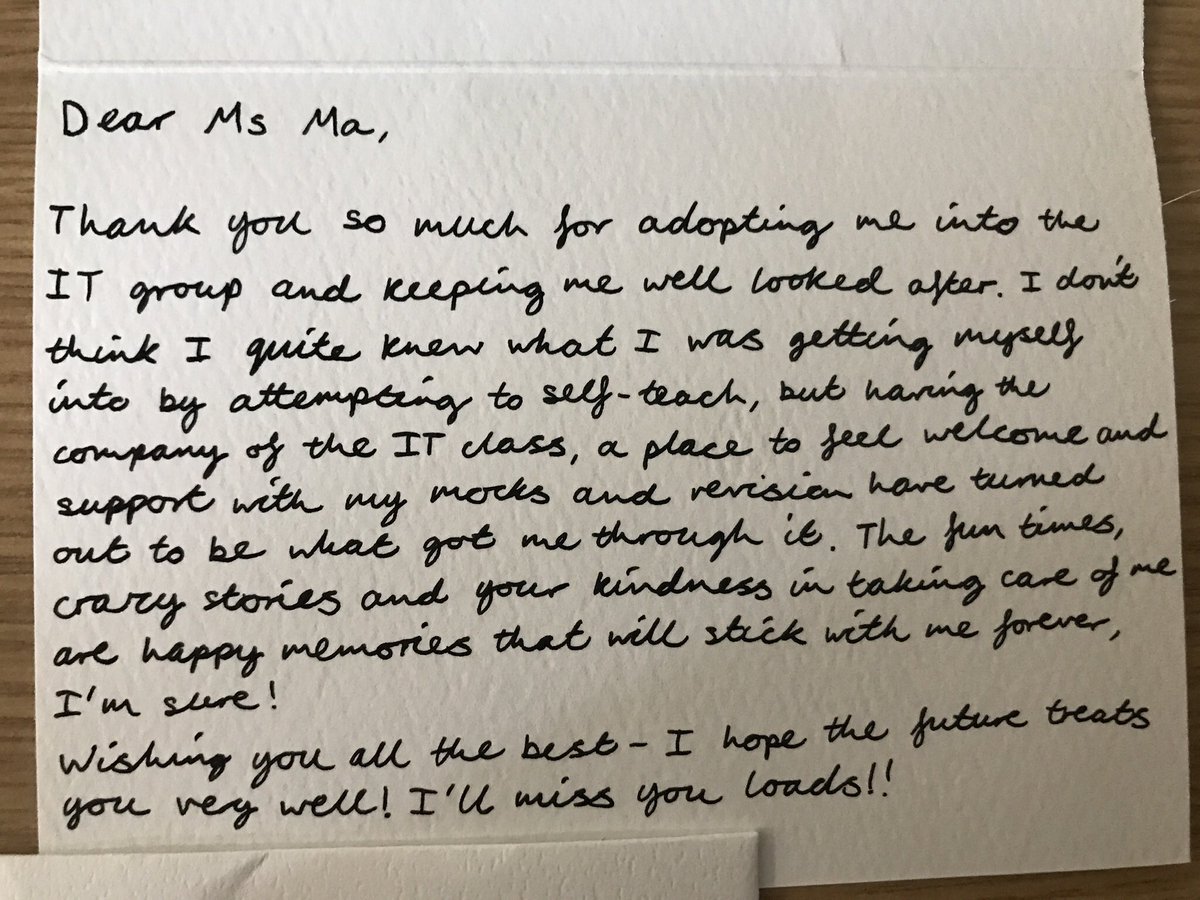 Dear Ms Ma,
Thank you so much for adopting me into the
IT group and keeping me well looked after. I don't
think I quite knew what I was getting myself
into by attempting to self-teach, but having the
company of the IT class, a place to feel welcome and
support with my mocks and revision have turned
out to be what got me through it. The fun times,
crazy stories and your kindness in taking care of me
are happy memories that will stick with me forever,
I'm sure!
Wishing you all the best - I hope the future treats
you very well! I'll miss you loads!!